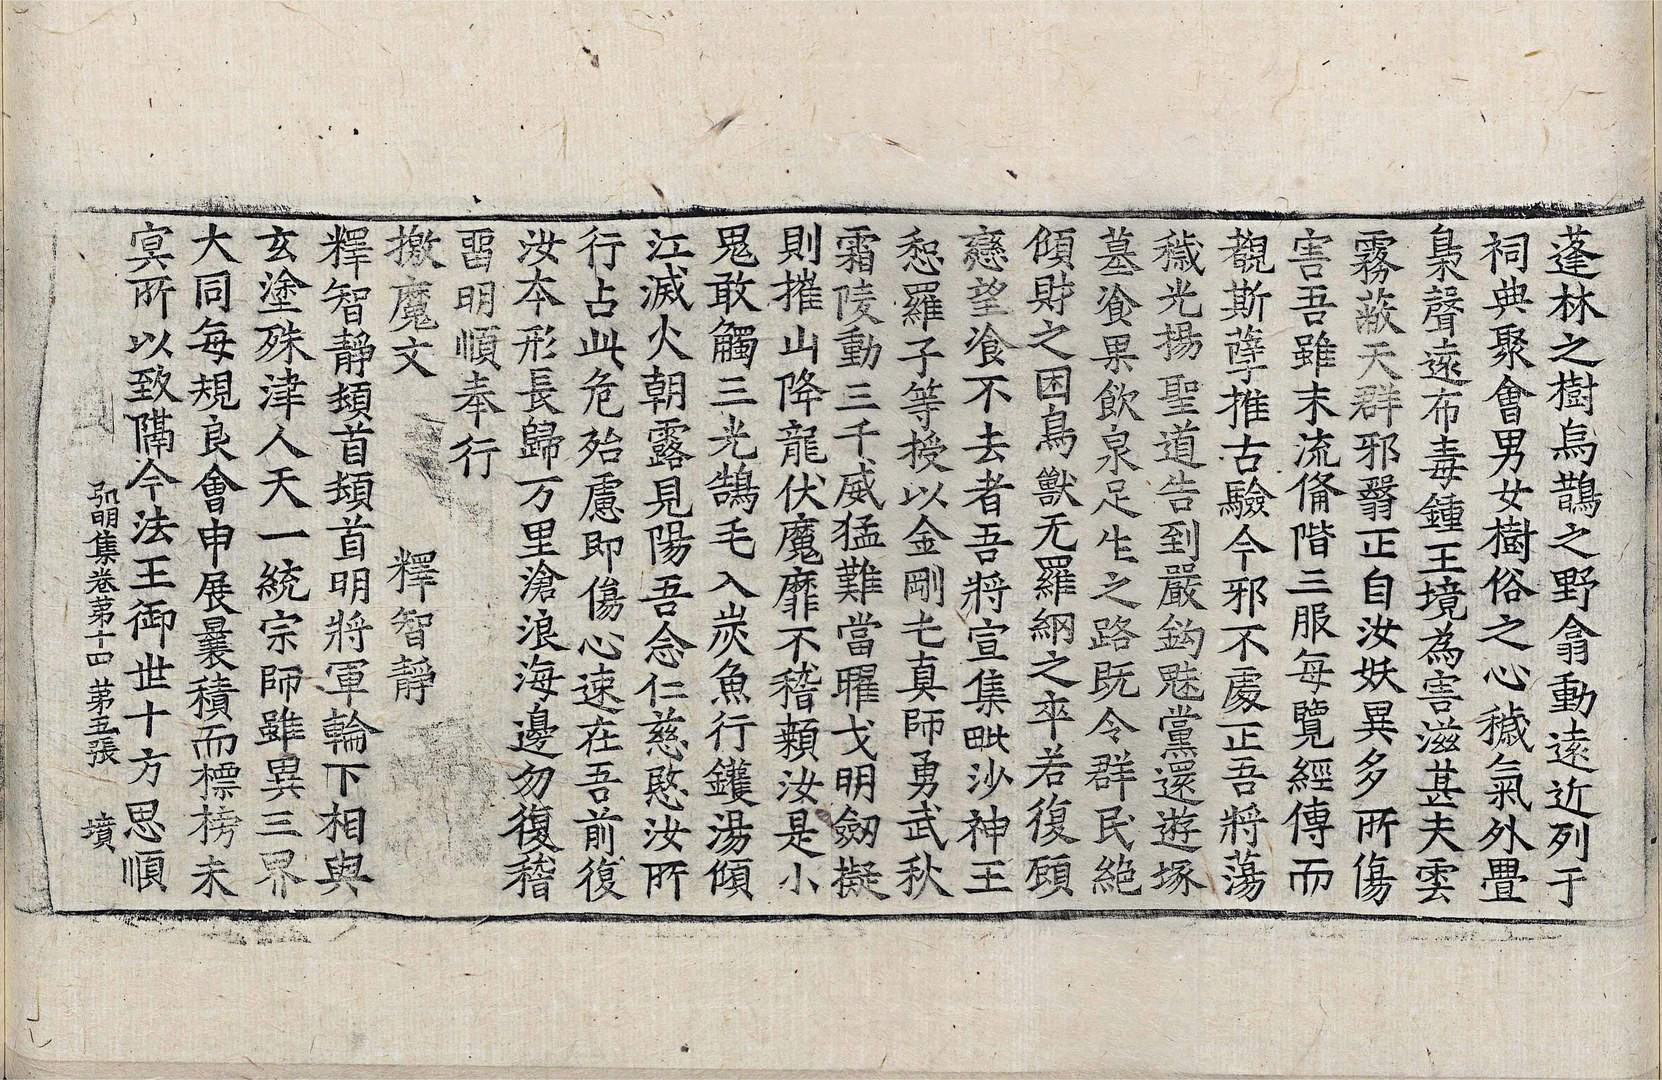 蓬林之樹烏鵲之野翕動遠近列于
祠典聚會男女樹俗之心穢氣外疊
梟聲遠布毒鍾王境為害滋甚夫雲
霧蔽天群邪翳正自汝妖異多所傷
害吾雖末流俻階三服每覽經傳而
觀斯孽推古驗今邪不處正吾將蕩
穢光揚聖道告到嚴鈎魅黨還遊塚
墓飡果飲泉足生之路既令群民絕
傾財之困鳥獸无羅網之卒若復顧
戀望飡不去者吾將宣集毗沙神王
惒羅子等授以金剛屯真師勇武秋
霜陵動三千威猛難當曜戈明劔擬
則摧山降龍伏魔靡不稽顙汝是小
鬼敢觸三光鵠毛入炭魚行鑊湯傾
江滅火朝露見陽吾念仁慈愍汝所
行占此危殆慮即傷心速在吾前復
汝本形長歸万里滄浪海邊勿復稽
畱明順奉行
檄魔文　釋智靜
釋智靜頓首頓首明將軍輪下相與
玄塗殊津人天一統宗師雖異三界
大同每規良會申展曩積而標榜未
冥所以致隔今法王御世十方思順
弘明集卷第十四　第五張　墳